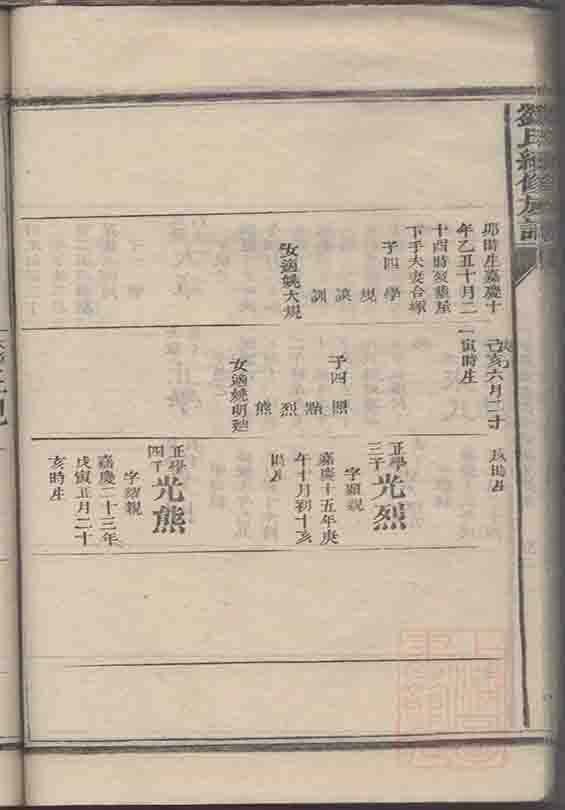 劉氏修族譜
卯時生嘉慶十
年乙丑十月二
十酉時歿葬屋
下手夫妻合塚
子四 學 規 謨 訓
女適姚大規
己亥六月二十
一寅時生
子四 照 點 烈 熊
女適姚明
時生
正學三子 光烈
字顯親
嘉慶十五年庚
午十月初十亥
時生
正學四子 光熊
字耀親
嘉慶二十三年
戊寅正月二十
亥時生